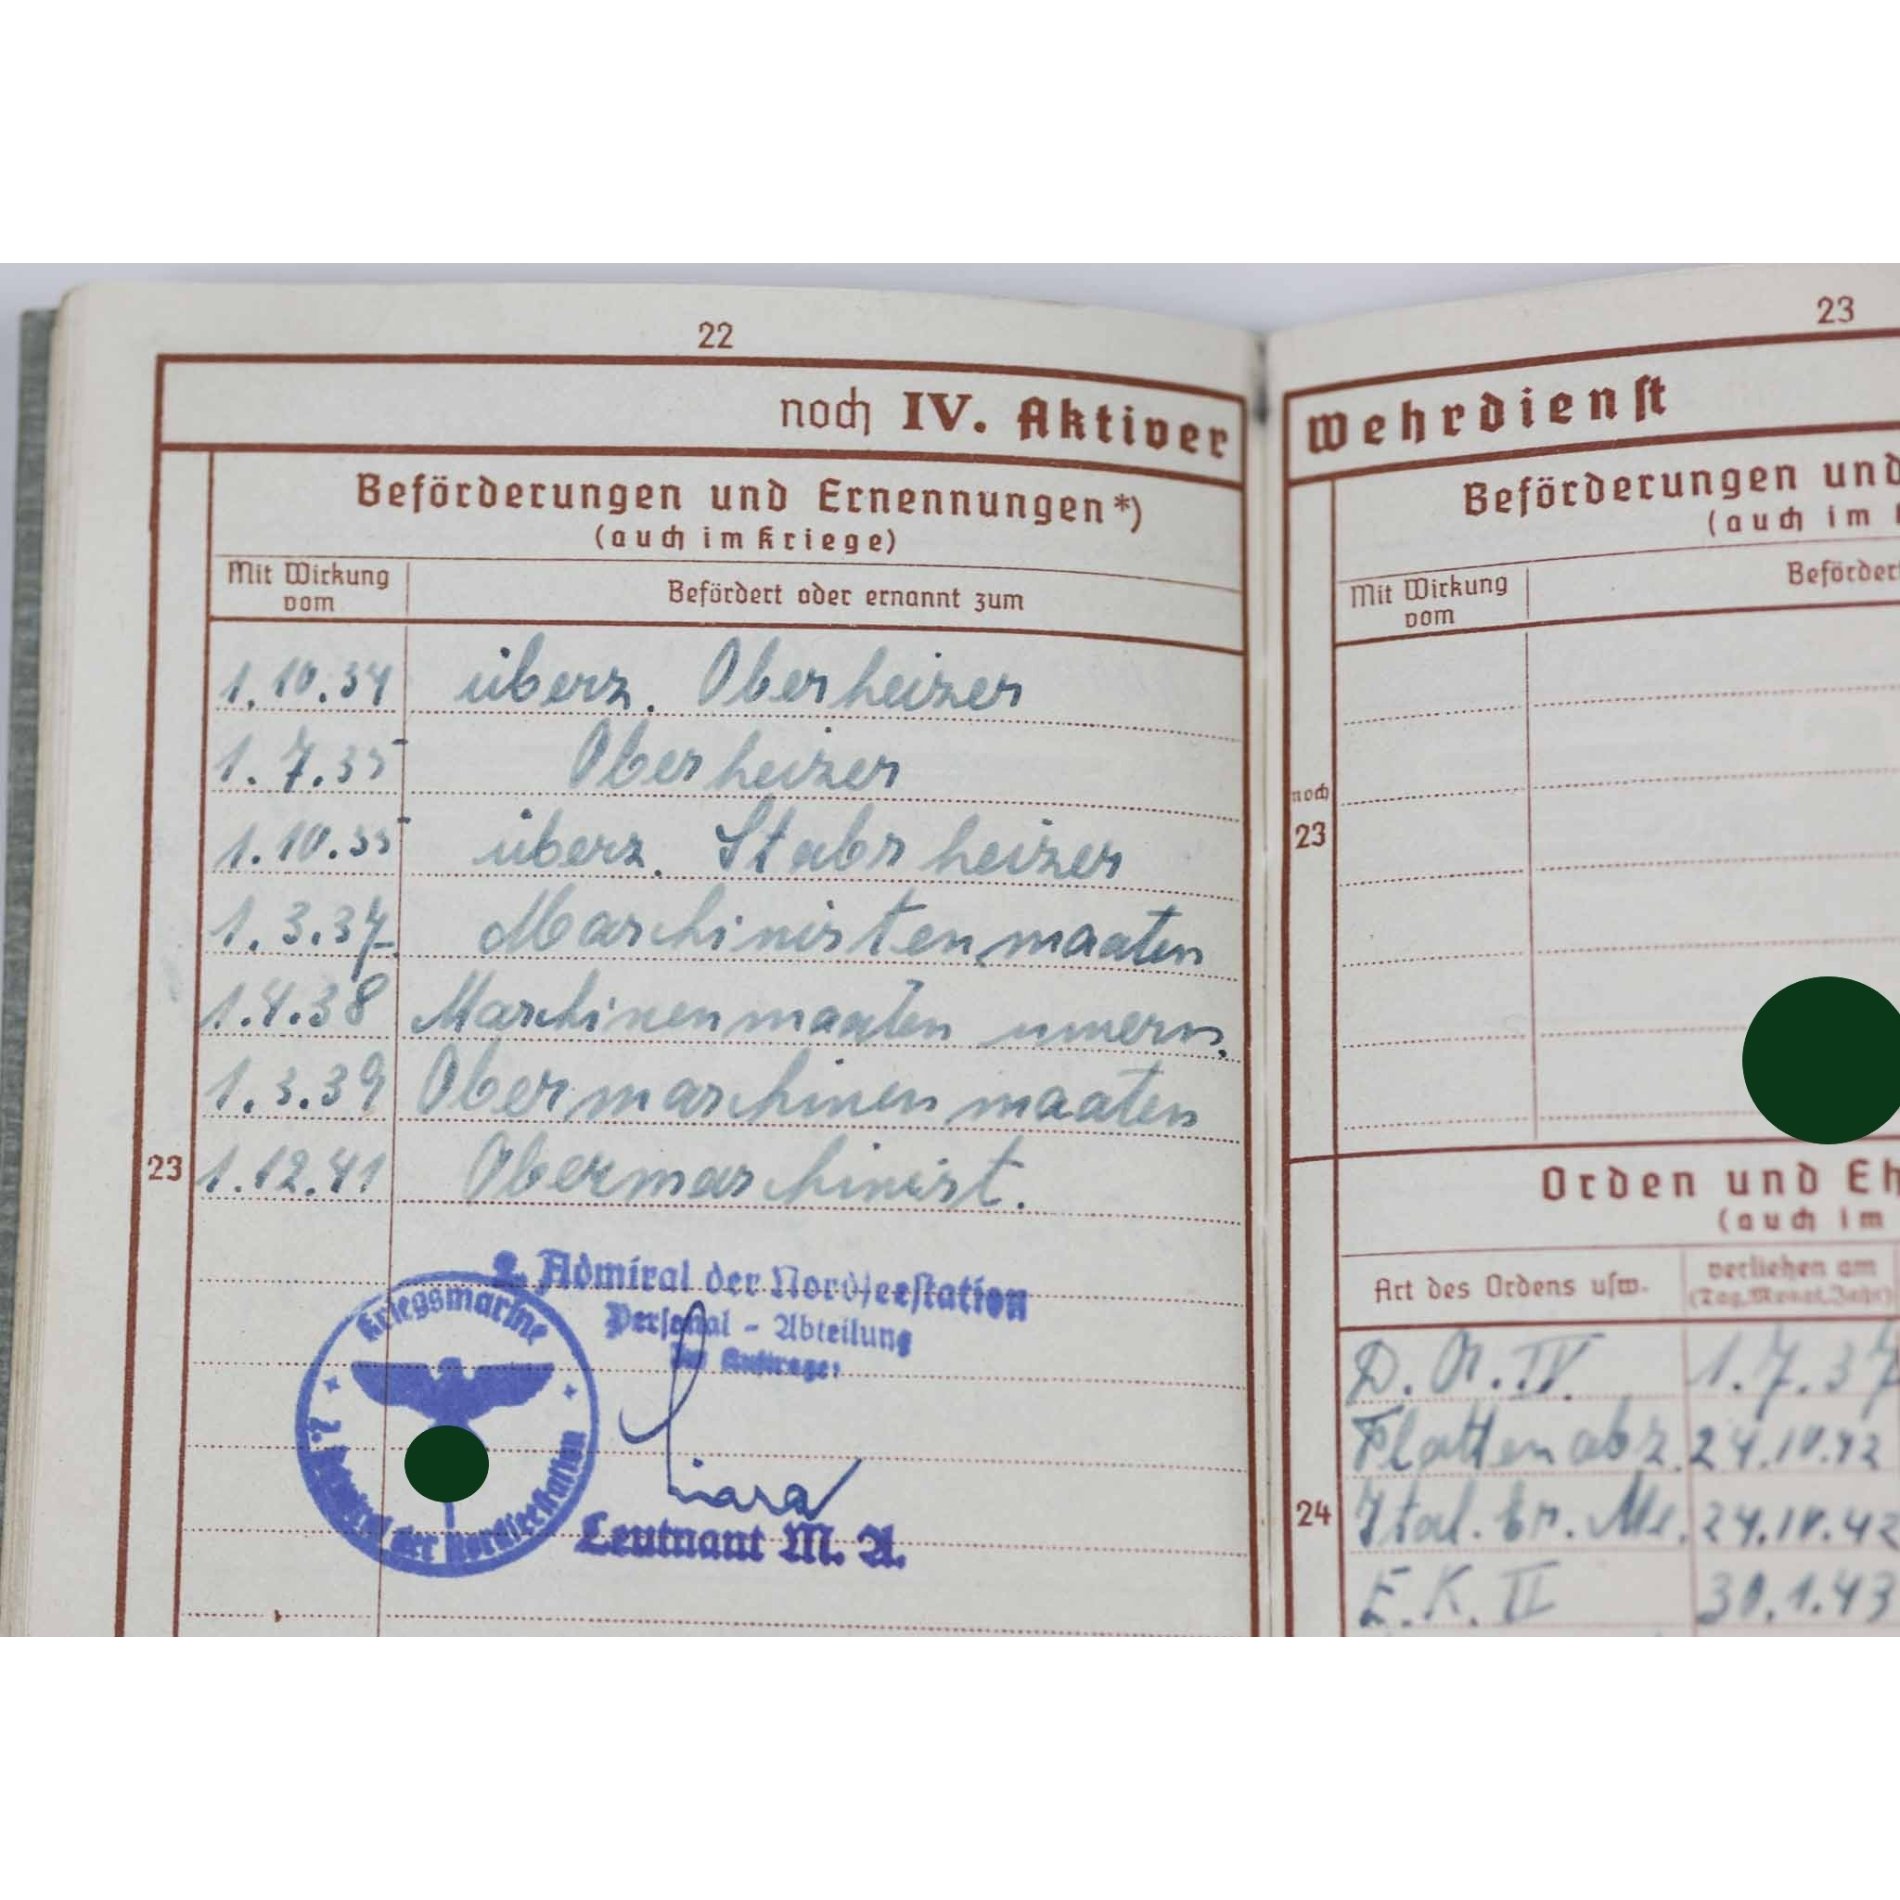 22
noch IV. Aktiver
Beförderungen und Ernennungen*)
(auch im Kriege)
Mit Wirkung vom
Befördert oder ernannt zum
1.10.34 überz. Oberheizer
1.7.35 Oberheizer
1.10.35 überz. Stabsheizer
1.3.37. Maschinistenmaaten
1.4.38 Maschinenmaaten umern.
1.3.39 Obermaschinenmaaten
23 1.12.41 Obermaschinist.
2. Admiral der Nordseestation
Personal - Abteilung
Im Auftrage:
Kriegsmarine
2. Admiral der Nordseestation
Leutnant M. A.
23
Wehrdienst
Beförderungen und
(auch im
Mit Wirkung vom
Befördert
noch
23
Orden und Eh
(auch im
Art des Ordens usw.
verliehen am
(Tag, Monat, Jahr)
D. A. IV. 1.7.37
Flottenabz. 24.10.42
24 Ital. Kr. Me. 24.10.42
E. K. II 30.1.43